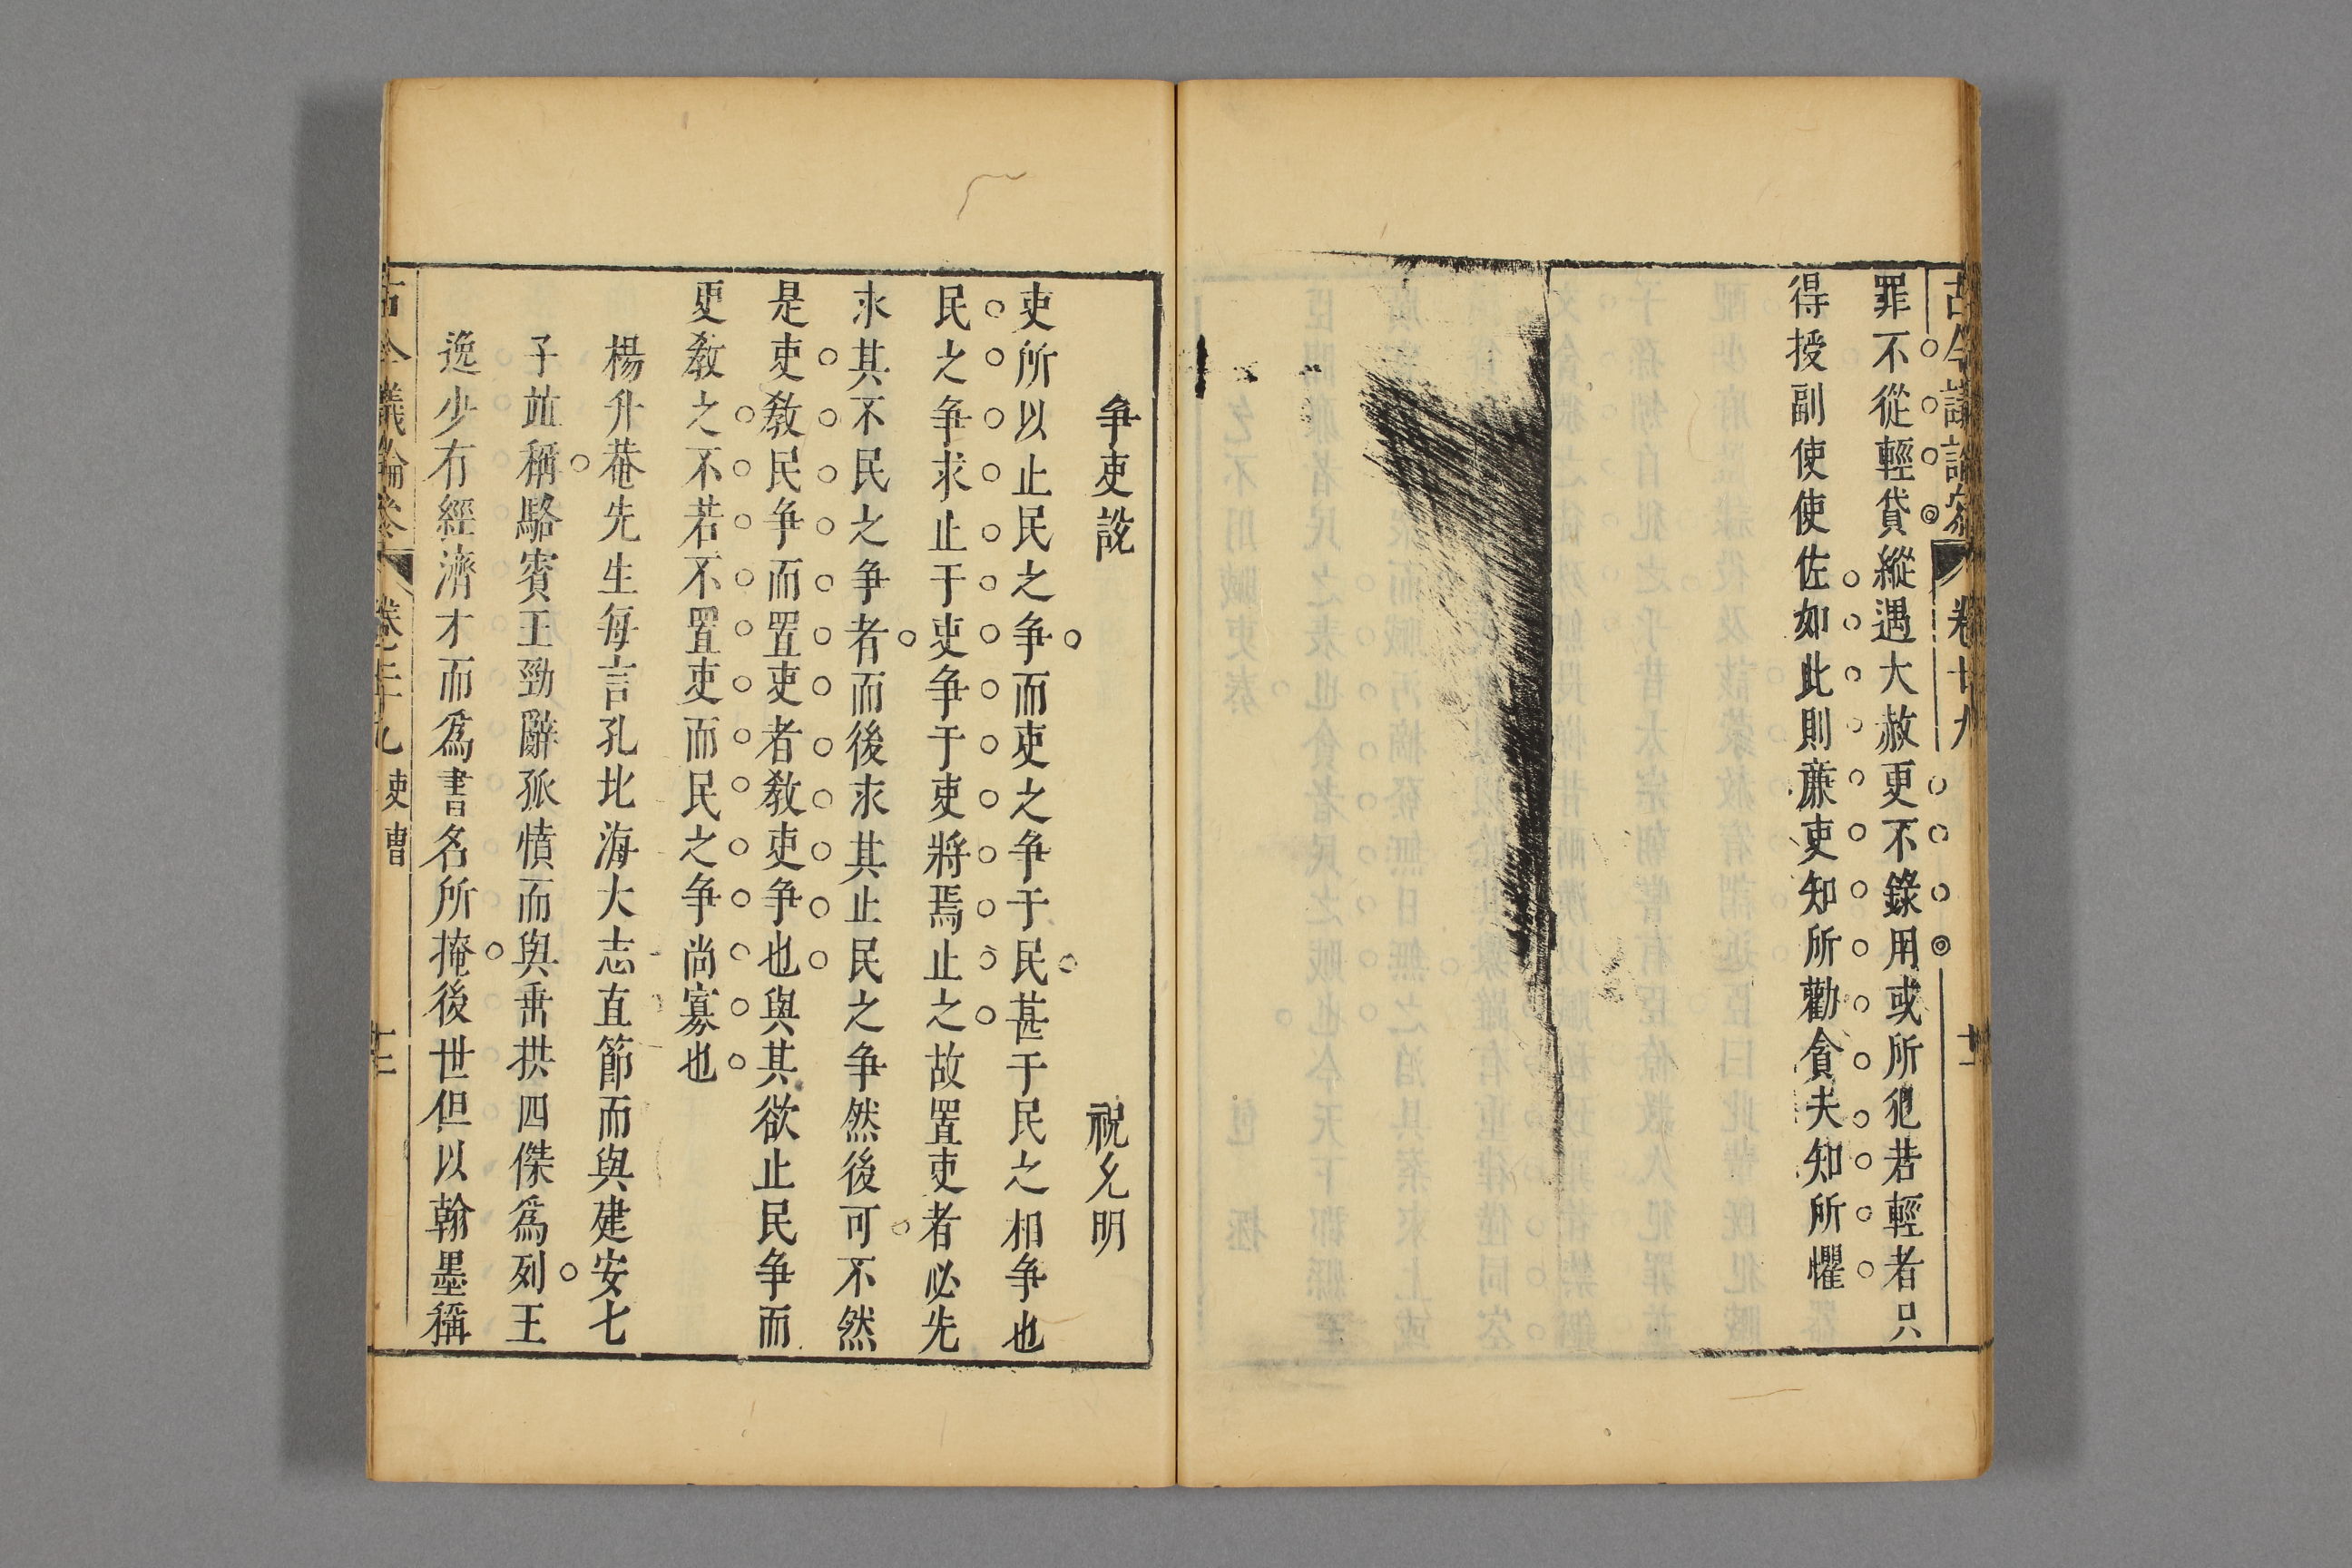 古今議論參 卷廿九 十一
罪不從輕貸縱遇大赦更不錄用或所犯若輕者只
得授副使使佐如此則㢘吏知所勸貪夫知所懼
爭吏說 祝允明
吏所以止民之爭而吏之爭于民甚于民之相爭也
民之爭求止于吏爭于吏將焉止之故置吏者必先
求其不民之爭者而後求其止民之爭然後可不然
是吏敎民爭而置吏者敎吏爭也與其欲止民爭而
更敎之不若不置吏而民之爭尚寡也
楊升菴先生每言孔北海大志直節而與建安七
子竝稱駱賓王勁辭孤憤而與垂拱四傑爲列王
逸少有經濟才而爲書名所掩後世但以翰墨稱
古今議論參 卷之二十九 吏曹 十二